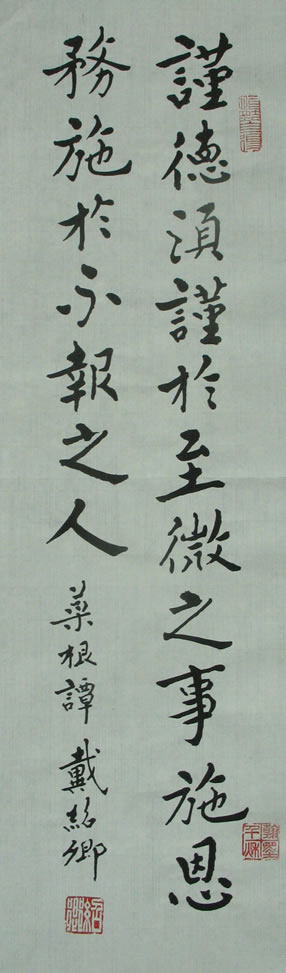 謹德須謹於至微之事施恩
務施於不報之人
菜根譚 戴紹卿